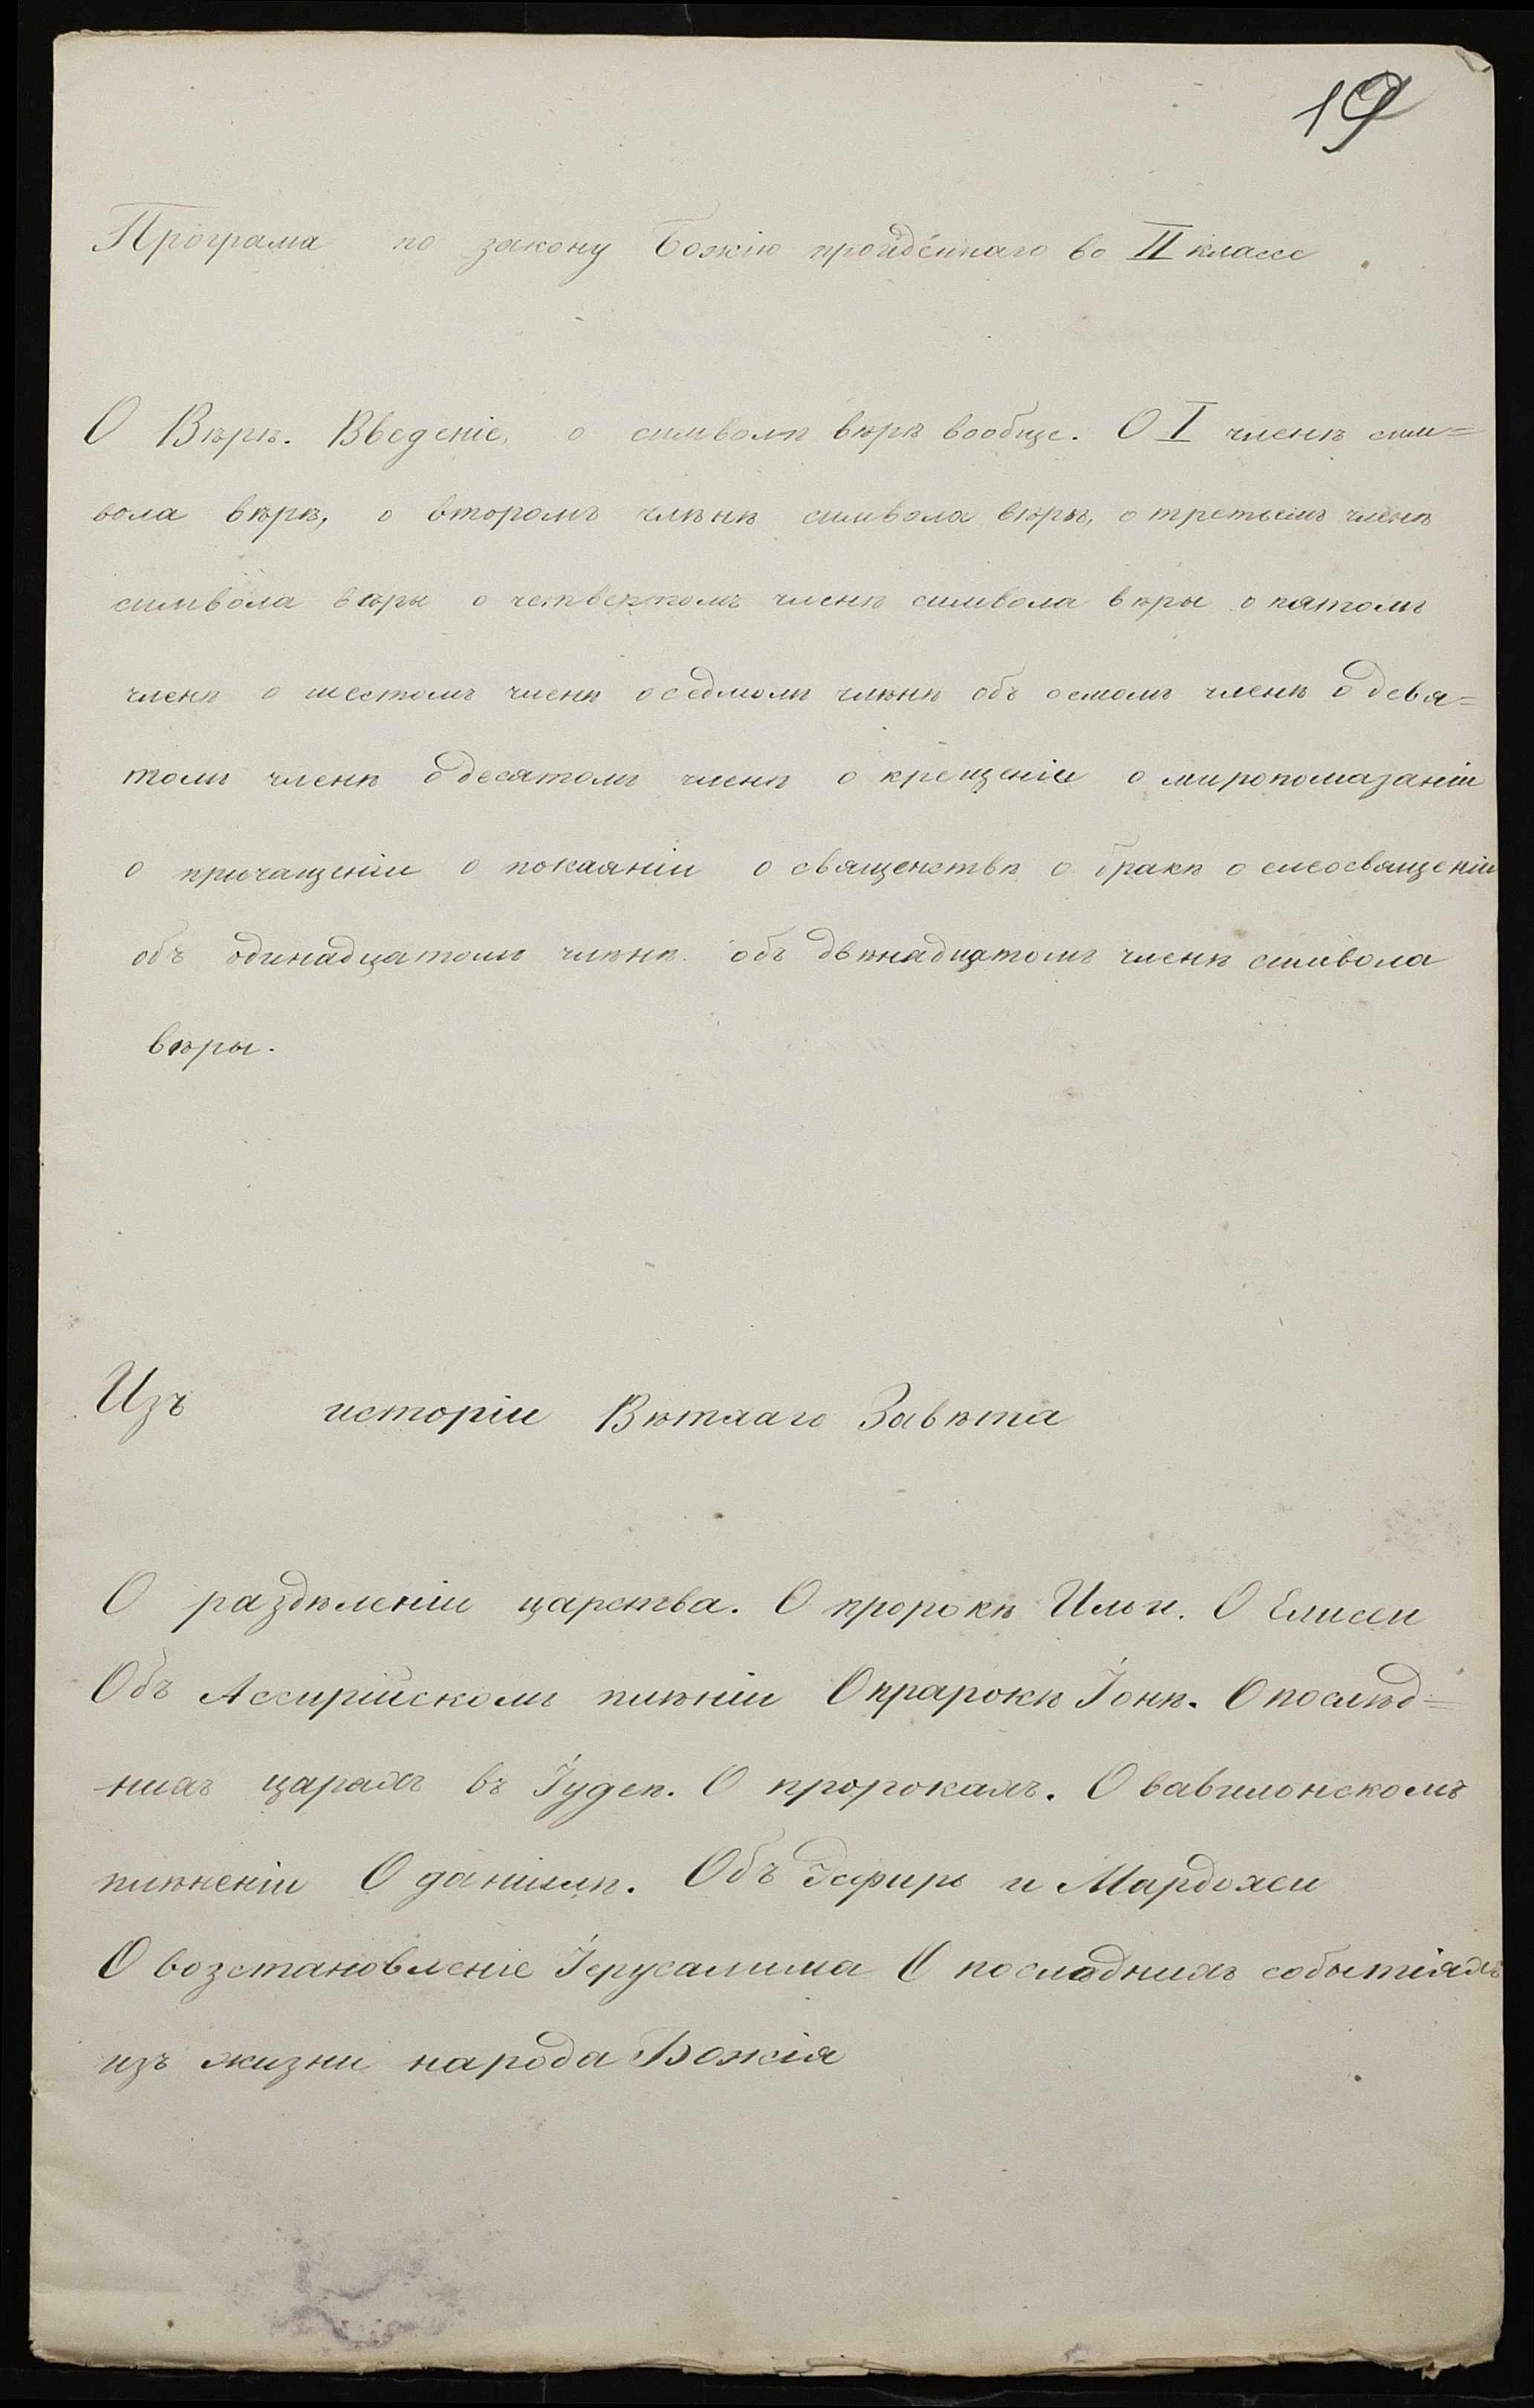 19
Програма по закону Божію пройденнаго во II классе
О Вѣрѣ. Введеніе, о символѣ вѣрѣ вообще. О I членѣ сим=
вола вѣрѣ, о второмъ члѣнѣ символа вѣры, о третьемъ членѣ
символа вѣры о четвертомъ членѣ символа вѣры о пятомъ
членѣ о шестомъ членѣ о седмомъ члѣнѣ объ осмомъ членѣ о девя=
томъ членѣ о десятомъ членѣ о крещеніи о миропомазаніи
о причащеніи о покаяніи о священствѣ о бракѣ о елеосвященіи
объ одинадцатомъ члѣнѣ объ двѣнадцатомъ членѣ символа
вѣры.
Изъ исторіи Вѣтхаго Завѣта
О раздѣленіи царства. О пророкѣ Ильи. О Елисеи
Объ Ассирійскомъ плѣніи О прарокѣ Іонѣ. О послѣд=
нихъ царяхъ въ Іудеѣ. О пророкахъ. О вавилонскомъ
плѣненіи О даніилѣ. Объ Эсфирь и Мардохеи
О возстановленіе Іерусалима О послѣднихъ событіяхъ
изъ жизни народа Божія